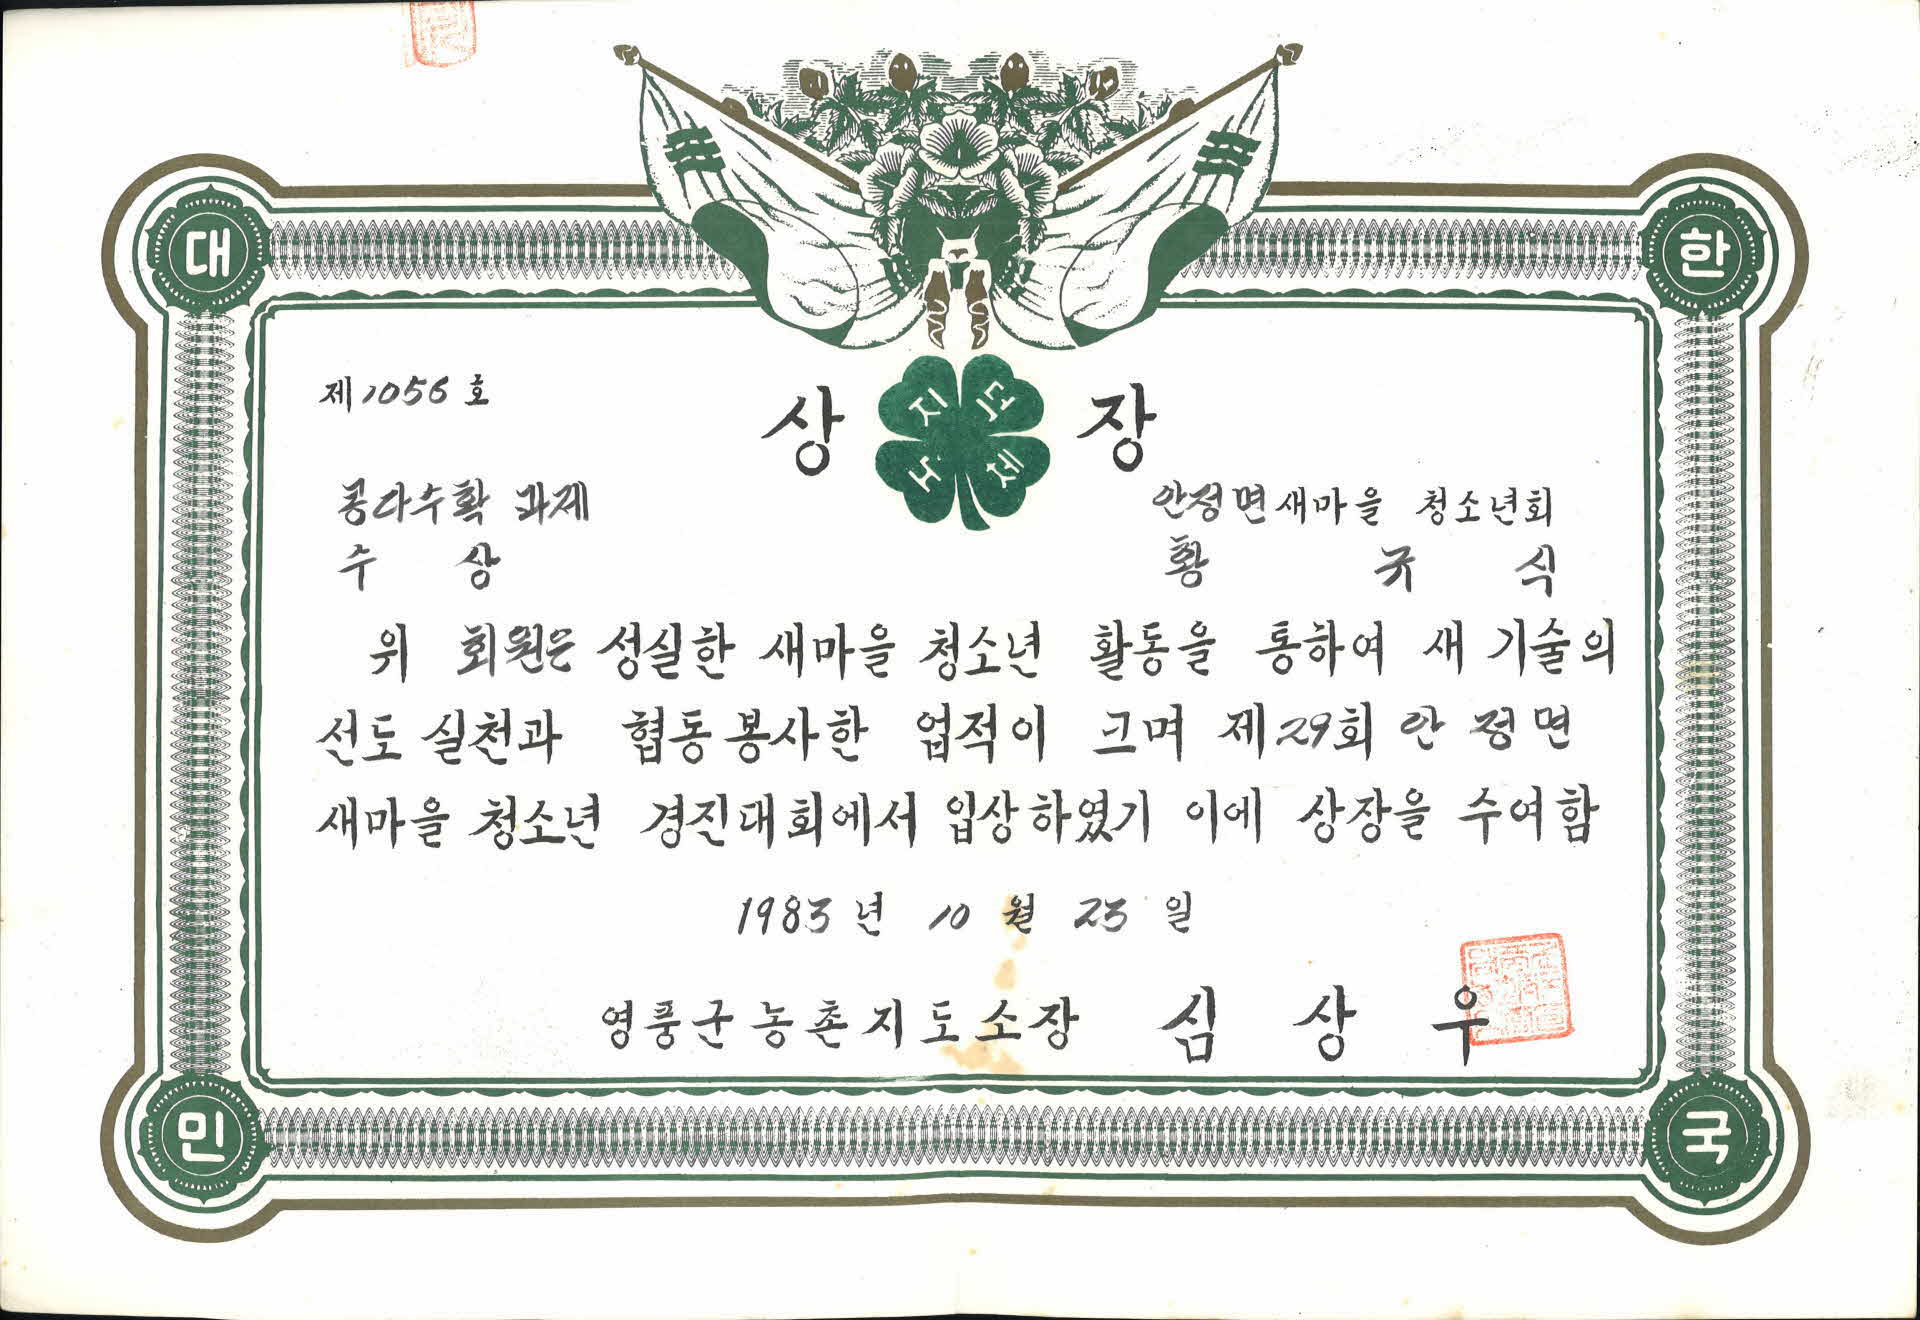 대 한
제 1056 호
상 장
지 덕
노 체
콩다수확 과제 안정면새마을 청소년회
수 상 황 규 식
위 회원은 성실한 새마을 청소년 활동을 통하여 새 기술의
선도 실천과 협동봉사한 업적이 크며 제29회 안정면
새마을 청소년 경진대회에서 입상하였기 이에 상장을 수여함
1983 년 10 월 23 일
영풍군농촌지도소장 심 상 우
민 국